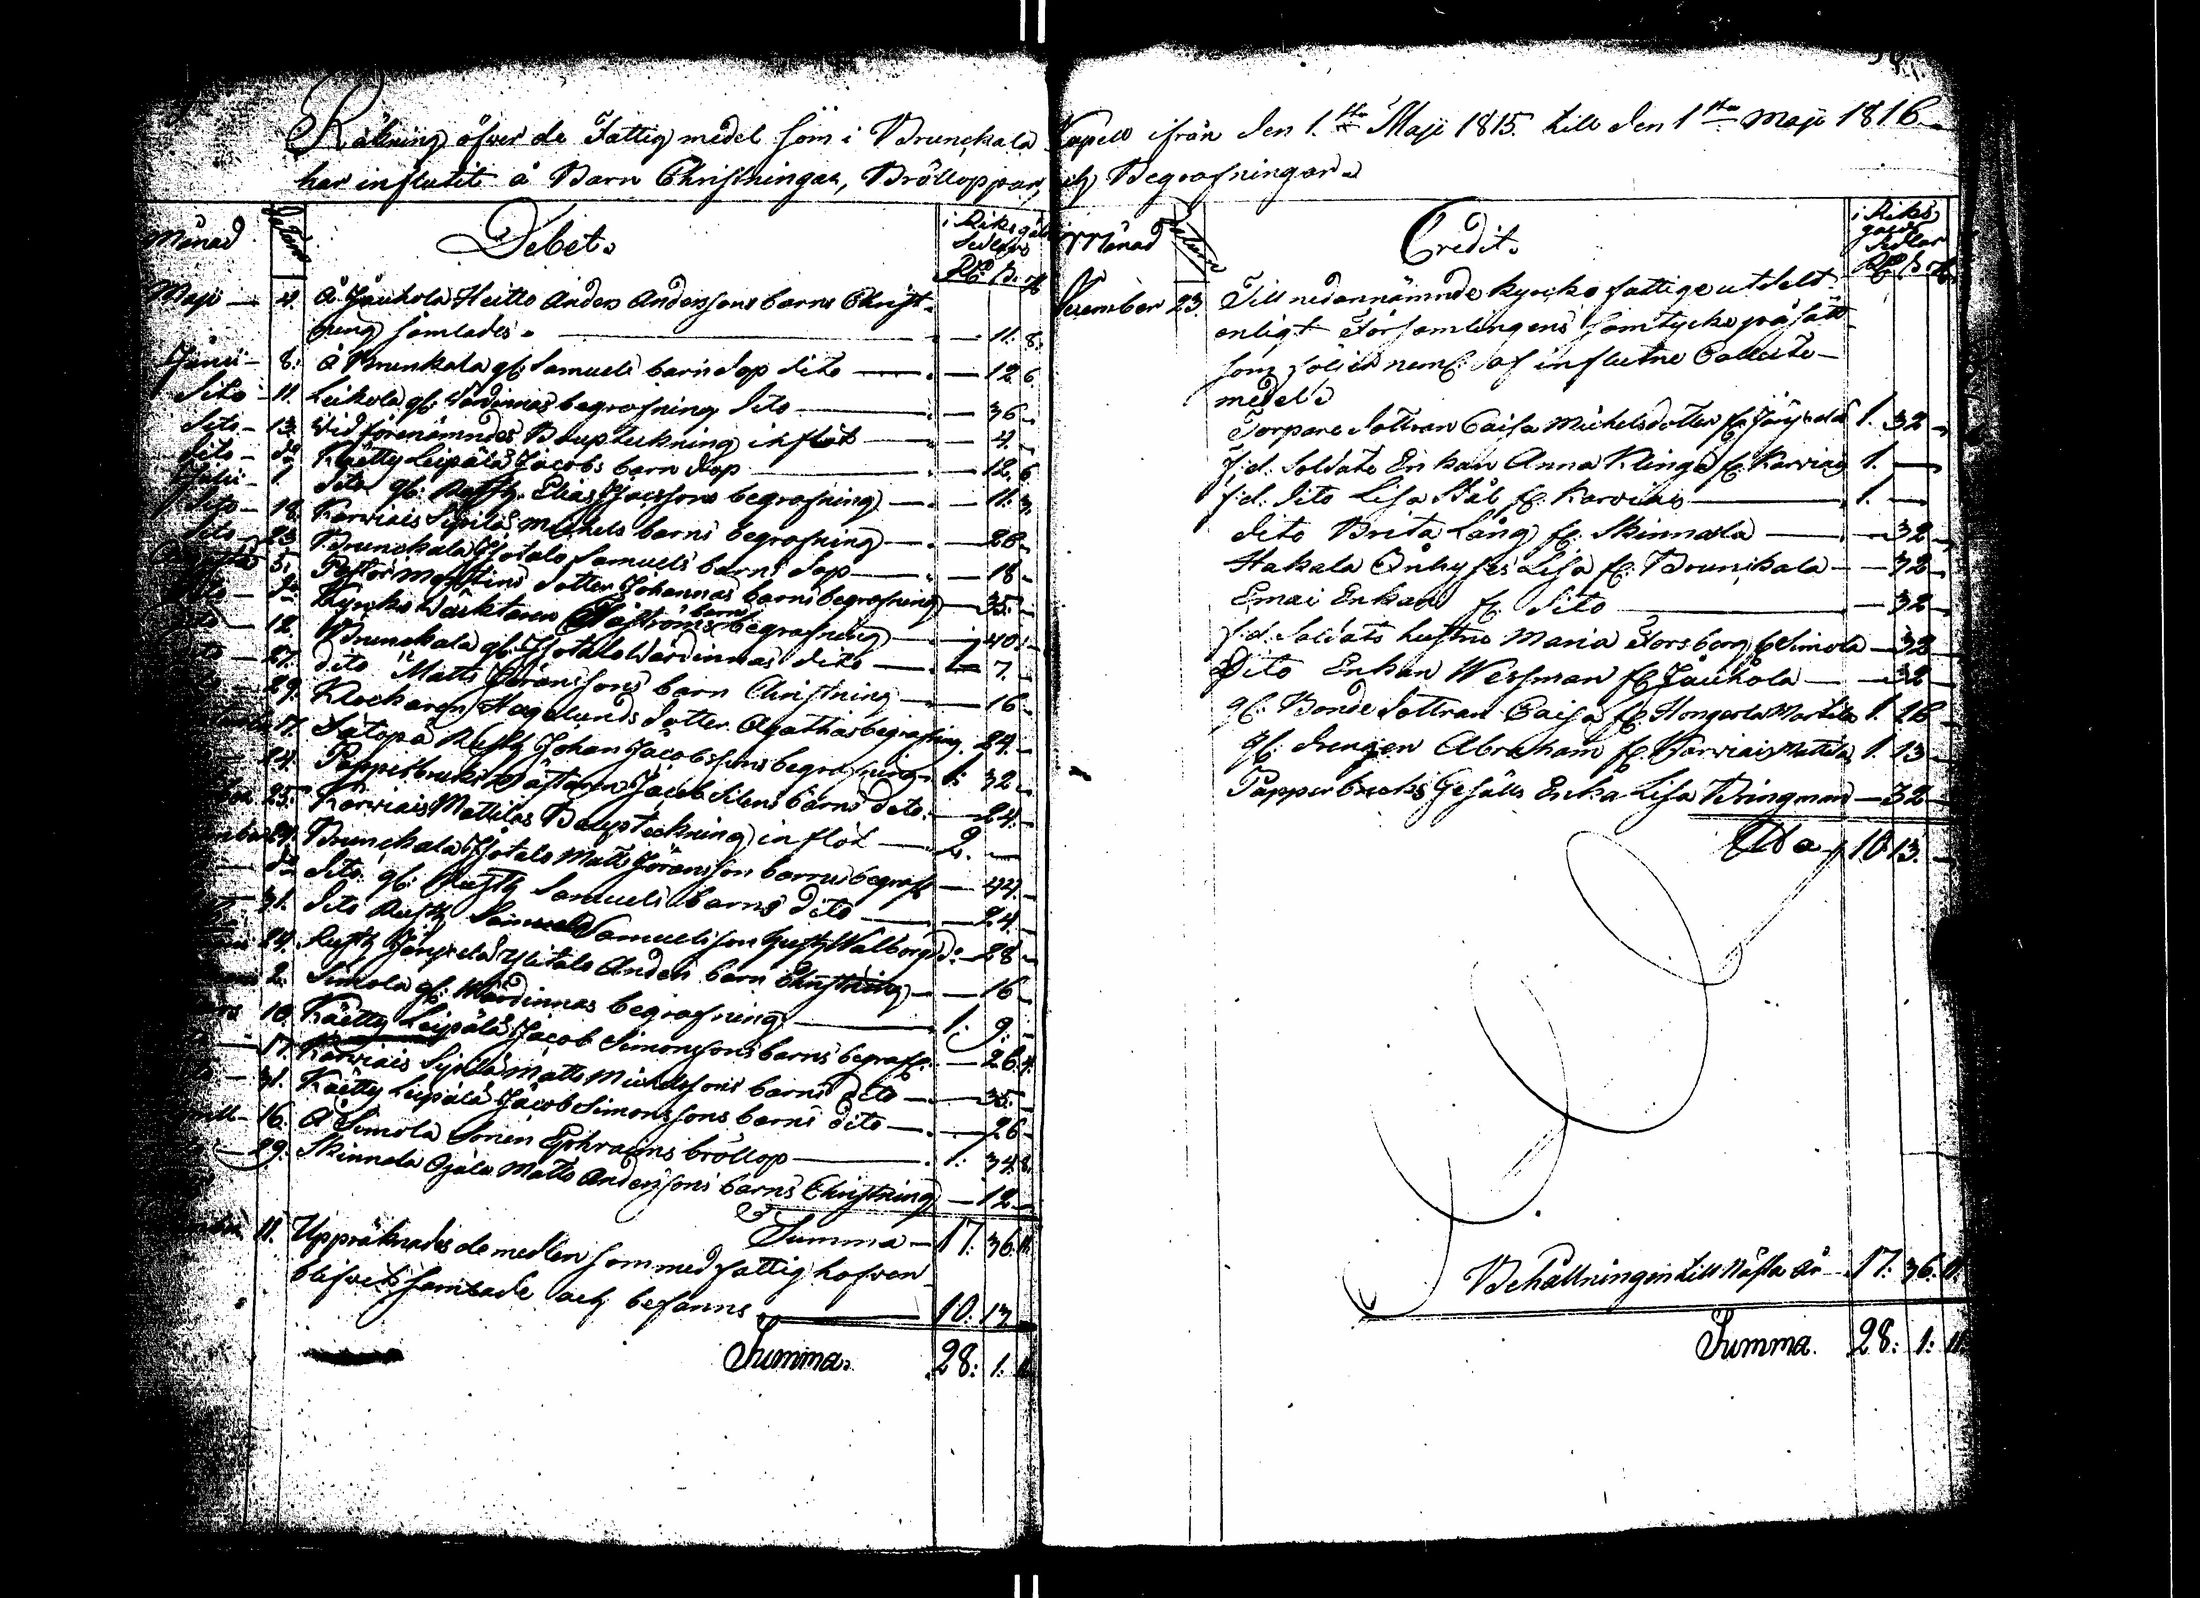 Räkning öfver de Fattig medel som i Brunckala Capell ifrån den 1sta Maji 1815. till den 1sta Maji 1816.
har influtit å Barn Christningar, Bröllopper, och Begrafningar.
Månad Datum Debet. i Riksgälds Sedlar
Rd. ß. r.
Maji 4. Å Jauhola Heitto Anders Anderssons barns Christ-
ning samlades. 11. 8.
Junii 8. å Brunkala gl. Samuels barns dop dito 12. 6.
dito 11. Leikola gl. Wärdinnas begrafning dito 36
dito 13. Vid förenämndes Bouptekning inflöt 4.
dito do Kältty Leipälä Jacobs barn dop 12. 6
Julii 1. dito gl. Rusth. Elias Jacssons begrafning 11. 3.
dito 18. Karviais Sipilä Michels barns begrafning 26
dito 23. Brunckala Yötalo Samuels barns dop 18
5. dotter Johannas barns begrafning 35.
do Kyrko Wäcktaren barns begrafning 40.
12. Brunckala gl. Yötalo Wärdinnas dito 1. 7.
27. dito Matts Göranssons barn Christning 16
29. Klockaren Hagelunds dotter Agathas begrafning. 24.
17. Satopä Rusth. Johan Jacobssons begrafning 1. 32
24. Pappersbruks Mästaren Jacob Silens barns dito. 24.
25. Karviais Mattilas Bouptekning inflöt 2.
24. Brunckala Yötalo Matts Göransson barns begrafn. 44.
do dito gl. Rusth. Samuels barns dito 24.
31. dito Rusth. Samuelsson hustr. Walborg do 28
24. Rusth. Ylitalo Anders barn Christning 16
2. Simola gl. Wärdinnas begrafning 1. 9.
10. Kältty Leipälä Jacob Simonssons barns begrafn. 26. 4.
17. Karviais Sipilä Matts Michelssons barns dito 35.
31. Kältty Leipälä Jacob Simonssons barns dito 26
16. å Simola Sonen Ephraims bröllop 1. 34. 8.
29. Skinnala Ojala Matts Anderssons barns Christning 12.
Summa 17. 36. 11.
11. Uppräknades de medlen som med fattig hofven
blifvit samlade och befanns 10. 13
Summa. 28. 1. 11.
Månad Datum Credit. i Riks
gälds
Sedlar
Rd. ß. r.
December 23. Till nedannämnde kyrko fattige utdelt
enligt Församlingens samtycke på sätt
som följer neml. af influtne Collecte
medel
Torpare dottran Caisa Michelsdotter fr. 1. 32
f:d. Soldate Enkan Anna Klinga fr. Karviais 1.
f:d. dito Lisa Stål fr. Karviais 1.
dito Brita Lång fr. Skinnala 32
Hakala Lisa fr. Brunkala 32
Emai Enkan fr. dito 32
f:d. Soldats hustru Maria Forsberg fr. Simola 32
Dito Enkan Wessman fr. Jauhola 32
gl. Bonde dottran Caisa fr. Hongerla Martila 1. 28
gl. drengen Abraham fr. Karviais Mattila 1. 13
Pappersbruks Gesälls Enka Lisa Bringman 32
10. 13.
Behållningen till Näste år 17. 36. 11.
Summa. 28. 1. 11.